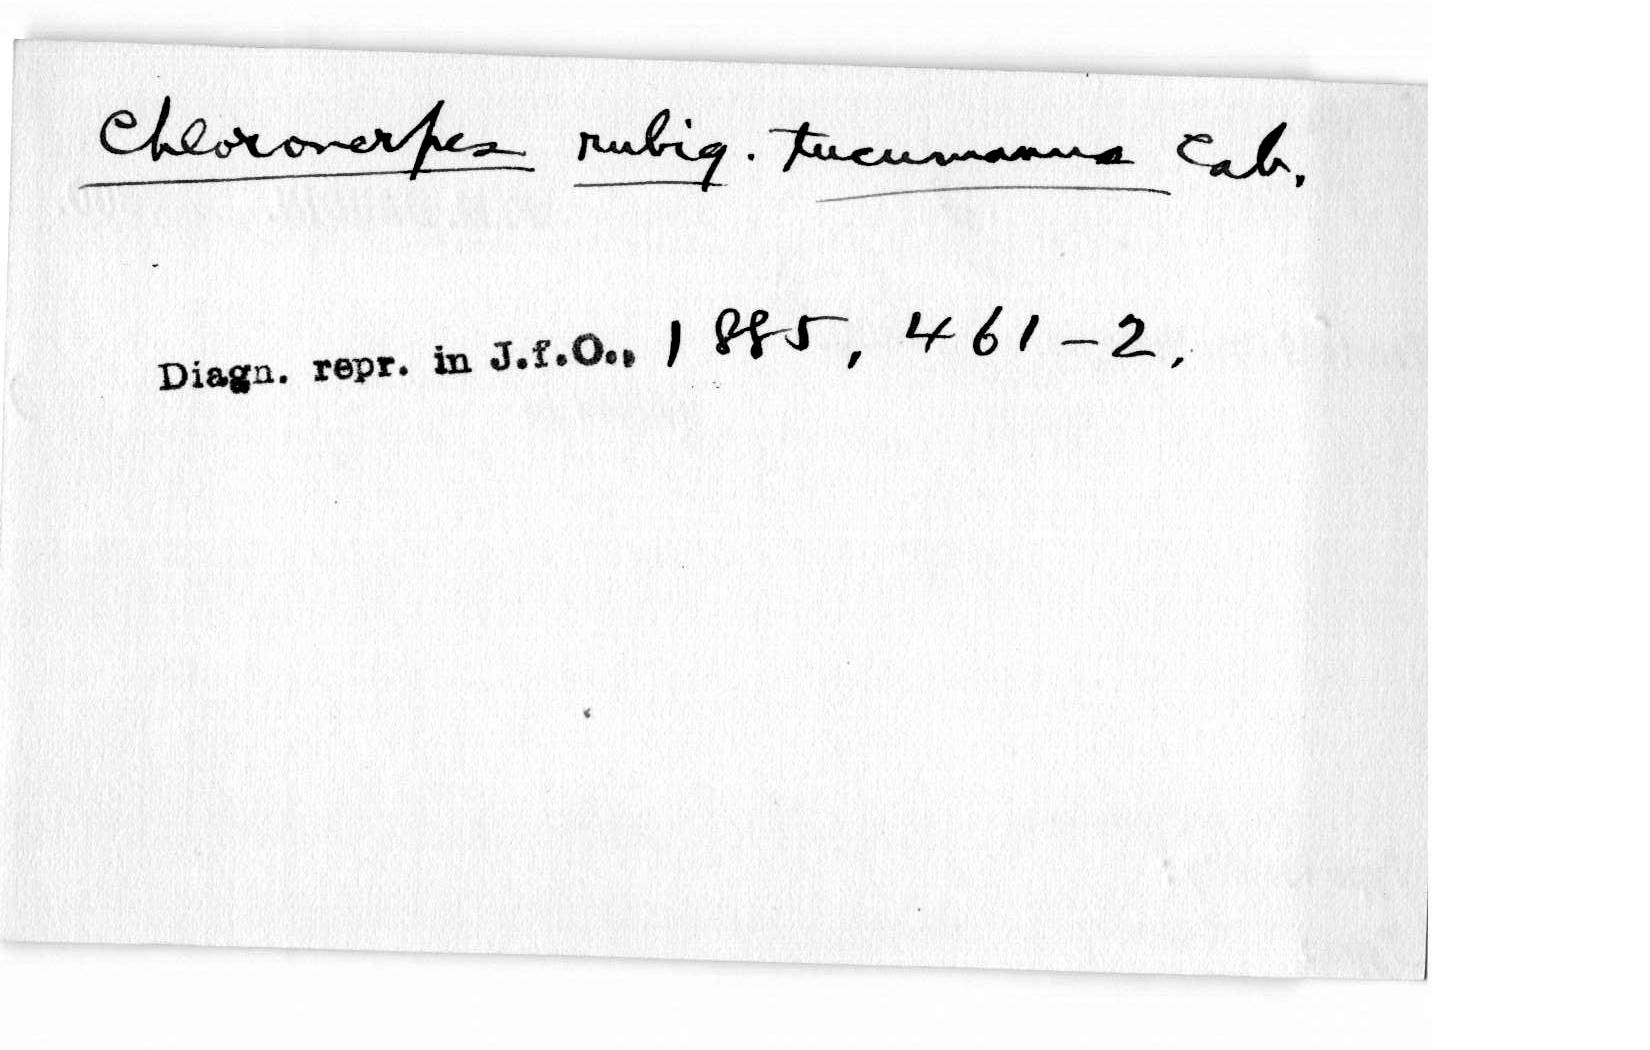 Chloronerpes rubig. tucumanus Cab.
Diagn. repr. in J.f.O., 1885, 461-2.